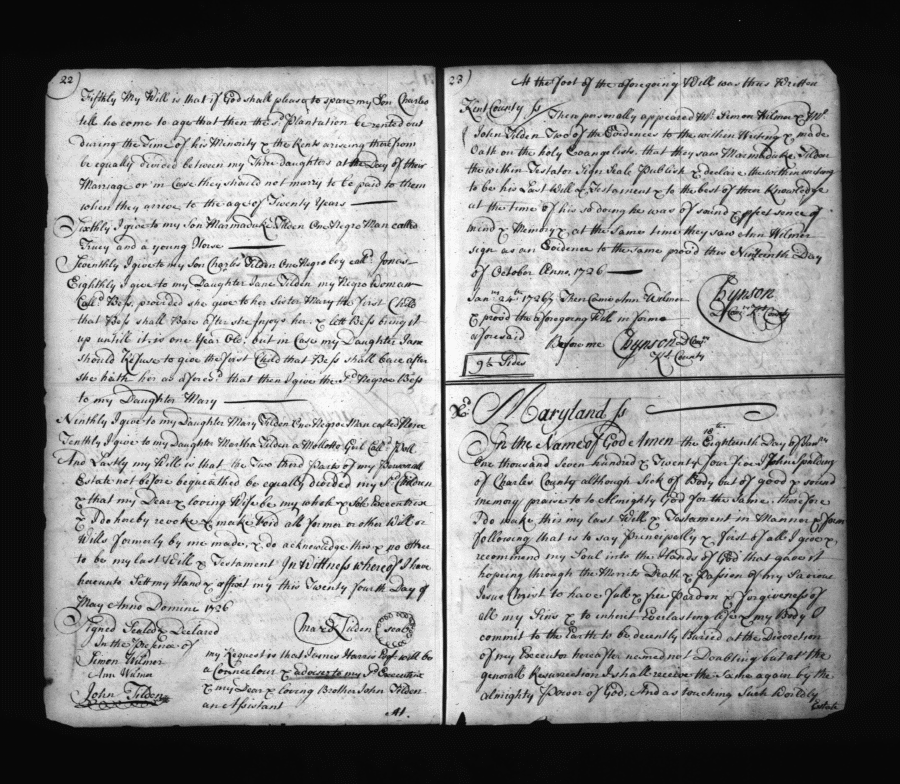 22
Fifthly My Will is that if God shall please to spare my Son Charles
till he come to age that then the sd. Plantation be rented out
during the Time of his Minority & the Rents arising therefrom
be equally divided between my Three Daughters at the Day of their
Marriage or in Case they should not marry to be paid to them
when they arrive to the age of Twenty Years
Sixthly I give to my Son Marmaduke Tilden One Negro Man called
and a young Horse
Seventhly I give my Son Charles Tilden One Negro boy calld.
Eighthly I give to my Daughter Jane Tilden my Negro Woman
Calld. Bess, provided she give to her Sister Mary the First Child
that Bess shall Bare after she Injoys her, & lett Bess bring it
up untill it is one Year Old: but in case my Daughter Jane
should Refuse to give the first Child that Bess shall bare after
she hath her as aforesd. that then I give the sd. Negroe Bess
to my Daughter Mary
Ninthly I give to my Daughter Mary Tilden One Negroe Man called
Tenthly I give to my Daughter Martha Tilden a Mollotto Girl Calld.
And Lastly my Will is that the Two third Parts of my Personall
Estate not before bequeathed be equally divided my sd. Children
& that my Dear & loving Wife be my whole & Sole Executrix
& I do hereby revoke & make Void all former or other Will or
Wills formerly by me made, & do acknowledge this & no other
to be my last Will & Testament In Wittness whereof I have
hereunto Sett my Hand & affixt my this Twenty fourth Day of
May Anno Domini 1726
Signed Sealed & Declared
In the presence of
Simon Wilmer
Ann Wilmer
John Tilden
Mar: Tilden Seal
my Request is that James Harris Esqr. will be
a Councelour & adviser to my sd. Executrix
& my Dear & loving Brother John Tilden
an Assistant
At
23
At the foot of the aforegoing Will was thus Written
Kent County ss
Then personally appeared Mr. Simon Wilmer & Mr.
John Tilden Two of the Evidences to the within Writing & made
Oath on the holy Evangelists that they saw Marmaduke Tilden
the within Testator Sign Seale Publish & declare the within
to be his Last Will & Testament & to the best of their Knowledge
at the time of his so doing he was of sound & pfect sence of
mind & Memory & at the same time they saw Ann Wilmer
sign as an Evidence to the same provd this Ninteenth Day
of October Anno. 1726
Janry. 24th. 1726/7 Then Came Ann Wilmer
& provd the aforegoing Will in forme
aforesaid Before me
Hynson
County
Hynson
Kt. County
9½ Sides
Maryland ss
In the Name of God Amen the Eighteenth 18th. Day of
One thousand Seven hundred & Twenty I John
of Charles County although Sick of Body but of good & sound
memory praise to Almighty God for the Same, therefore
I do make this my last Will & Testament in Manner & form
following that is to say Principally & first of all I give &
recommend my Soul into the Hands of God that gave it
hoping through the Merrits Death & Passion of my Saviour
Jesus Christ to have full & free Pardon & forgiveness of
all my Sins & to inherit Everlasting life & my Body I
commit to the Earth to be decently Buried at the Discretion
of my Executor hereafter named not Doubting but at the
generall Resurrection I shall receive the Same again by the
almighty Power of God, And as touching Such Worldly
Estate